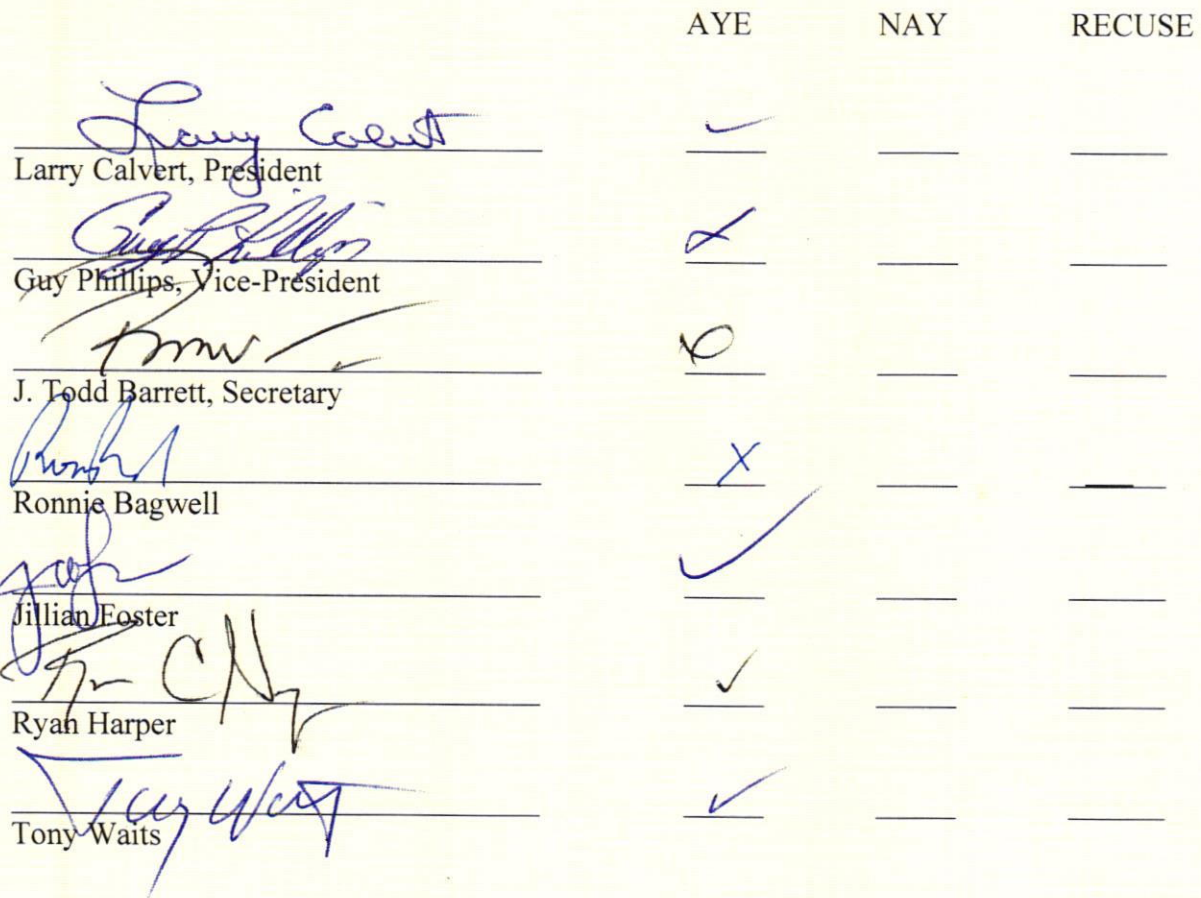 AYE NAY RECUSE
Larry Calvert ✓
Larry Calvert, President
Guy Phillips X
Guy Phillips, Vice-President
J. Todd Barrett, Secretary
X
Ronnie Bagwell
✓
Jillian Foster
✓
Ryan Harper
Tony Waits ✓
Tony Waits